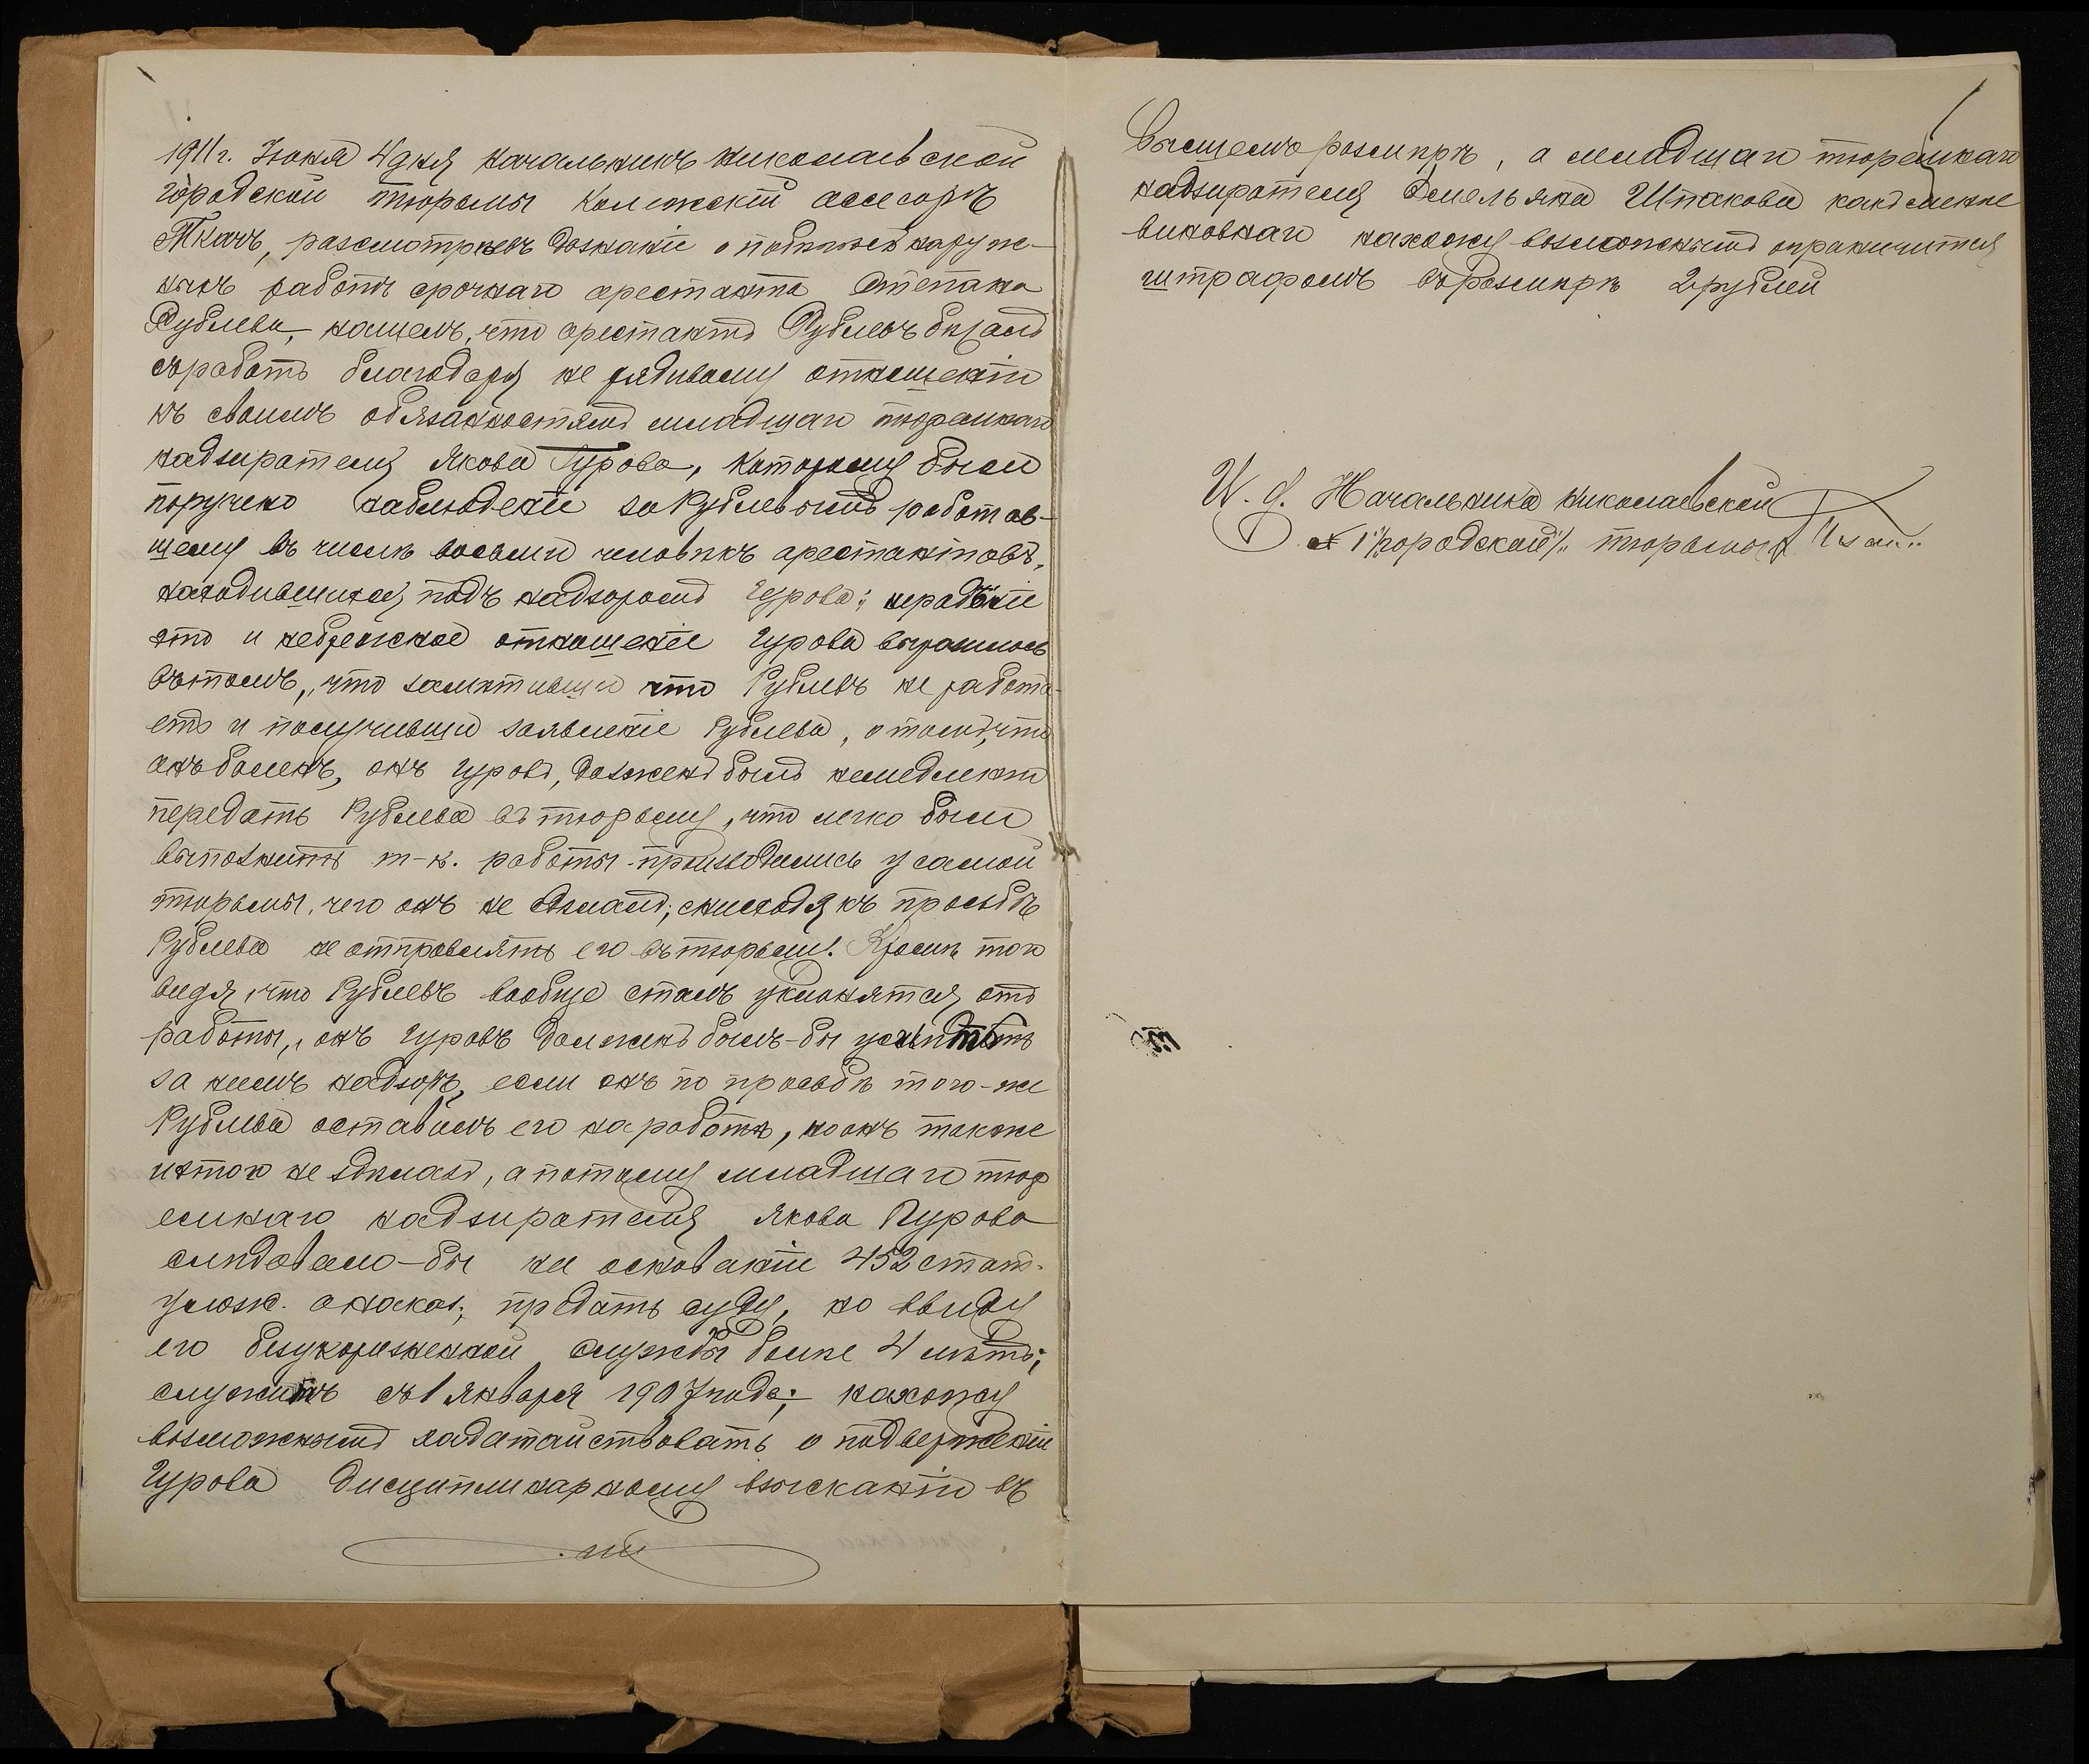 1911 г. Іюня 4 дня Начальникъ Николаевской
городской тюрьмы Колежскій асессоръ
Ткачъ, разсмотревъ дознаніе о побеге съ наруж-
ныхъ работъ срочнаго арестанта Степана
Рублева, нашелъ, что арестантъ Рублевъ бежалъ
съ работъ благодаря не радивому отношенію
къ своимъ обязанностямъ младшаго тюремнаго
надзирателя Якова Гурова, которому было
поручено наблюденіе за Рублевымъ работав-
шему въ числѣ восьми человѣкъ арестантовъ,
находившихся подъ надзоромъ Гурова; нерадѣніе
это и небрежное отношеніе Гурова выразилось
въ томъ, что замѣтивши что Рублевъ не работа-
етъ и получивши заявленіе Рублева, о томъ, что
онъ боленъ, онъ Гуровъ, долженъ былъ немедленно
передать Рублева въ тюрьму, что легко было
выполнить т-к. работы производились у самой
тюрьмы, чего онъ не сдѣлалъ, снисходя къ просьбѣ
Рублева не отправлять его въ тюрьму. Кромѣ того
видя, что Рублевъ вообще сталъ уклонятся отъ
работы, онъ Гуровъ долженъ былъ-бы усилить
за нимъ надзоръ, если онъ по просьбѣ того-же
Рублева оставилъ его на работѣ, но онъ также
и этого не здѣлалъ, а потому младшаго тюр
емнаго надзирателя Якова Гурова
слѣдовало-бы на основаніи 452 стат.
улож. о наказ; предать суду, но ввиду
его безукоризненной службы болѣе 4 лѣтъ;
служитъ съ 1 января 1907 года; нахожу
возможнымъ хадатайствовать о подверженіи
Гурова дисциплинарному взысканію въ
высшемъ размѣрѣ, а младшаго тюремнаго
надзирателя Емельяна Шпакова какъ менѣе
виновнаго нахожу возможнымъ ограничится
штрафомъ въ размѣрѣ 2 рублей
И. д. Начальника Николаевской
городской тюрьмы Ткачъ